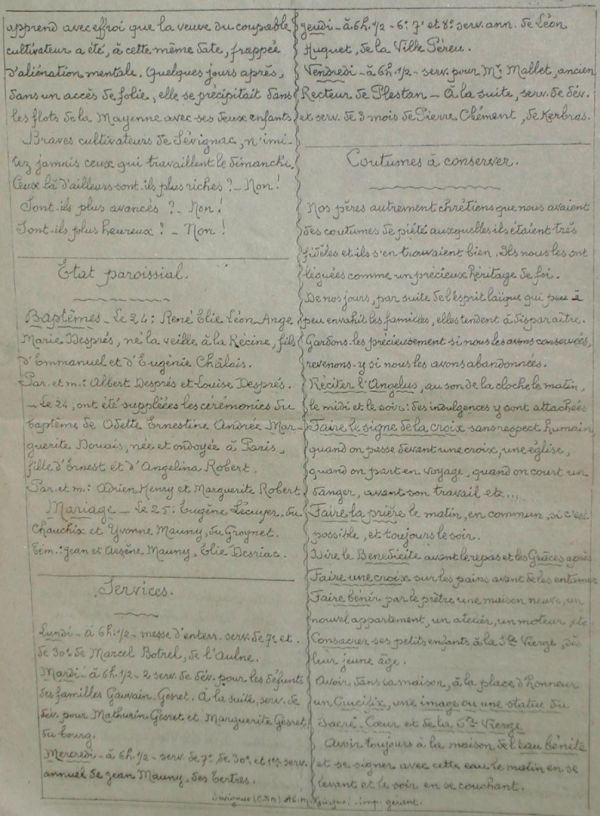 apprend avec effroi que la veuve du coupable
cultivateur a été, à cette même date, frappée
d'aliénation mentale. Quelques jours après,
dans un accès de folie, elle se précipitait dans
les flots de la Mayenne avec ses deux enfants.
Braves cultivateurs de Sévignac, n'imi-
tez jamais ceux qui travaillent le dimanche.
Ceux là d'ailleurs sont-ils plus riches ? - Non !
Sont-ils plus avancés ? - Non !
Sont-ils plus heureux ? - Non !
Etat paroissial.
Baptêmes - Le 24 : René Elie Léon Ange
Marie Després, né la veille à la Récine, fils
d'Emmanuel et d'Eugénie Châlois.
Par. et m : Albert Després et Louise Després.
- Le 24, ont été suppléées les cérémonies du
baptême de Odette Ernestine Andrée Mar-
guerite Douais, née et ondoyée à Paris,
fille d'Ernest et d'Angelina Robert.
Par. et m : Adrien Henry et Marguerite Robert
Mariage - Le 25 : Eugène Lécuyer, du
Chauchix et Yvonne Mauny, du Groynet.
Tém : Jean et Arsène Mauny. Elie Desriac.
Services.
Lundi - à 6h.1/2 - messe d'enterr. serv. de 7e et
de 30e de Marcel Botrel, de l'Aulne.
Mardi - à 6h.1/2 - 2 serv. de dév. pour les défunts
des familles Gauvain. Gesret. À la suite, serv. de
dév. pour Mathurin Gesret et Marguerite Gesret,
du bourg.
Mercredi - à 6h.1/2 - serv. de 7e, de 30e et 1er serv.
annuée de Jean Mauny, des tertres.
Jeudi - à 6h.1/2 - 6e, 7e et 8e serv. ann. de Léon
Huguet, de la Ville Péreu.
Vendredi - à 6h.1/2 - serv. pour Mr Mallet, ancien
Recteur de Plestan - À la suite, serv. de dév.
et serv. de 3 mois de Pierre Chément, de Kerbras.
Coutumes à conserver.
Nos pères autrement chrétiens que nous avaient
des coutumes de piété auxquelles ils étaient très
fidèles et ils s'en trouvaient bien. Ils nous les ont
léguées comme un précieux héritage de foi.
De nos jours, par suite de l'esprit laïque qui peu à
peu envahit les familles, elles tendent à disparaître.
Gardons-les précieusement si nous les avons conservées,
revenons-y si nous les avons abandonnées.
Réciter l'Angelus, au son de la cloche le matin,
le midi et le soir : des indulgences y sont attachées
Faire le signe de la croix sans respect humain,
quand on passe devant une croix, une église,
quand on part en voyage, quand on court un
danger, avant son travail etc...
Faire la prière le matin, en commun, si c'est
possible, et toujours le soir.
Dire le Benedicite avant le repas et les Grâces après
Faire une croix sur les pains avant de les entamer
Faire bénir par le prêtre une maison neuve, un
nouvel appartement, un atelier, un moteur, etc
Consacrer ses petits enfants à la Ste Vierge, dès
leur jeune âge.
Avoir dans sa maison, à la place d'honneur
un Crucifix, une image ou une statue du
Sacré-Cœur et de la Ste Vierge
Avoir toujours à la maison de l'eau bénite
et se signer avec cette eau le matin en se
levant et le soir en se couchant.
imp. gérant.